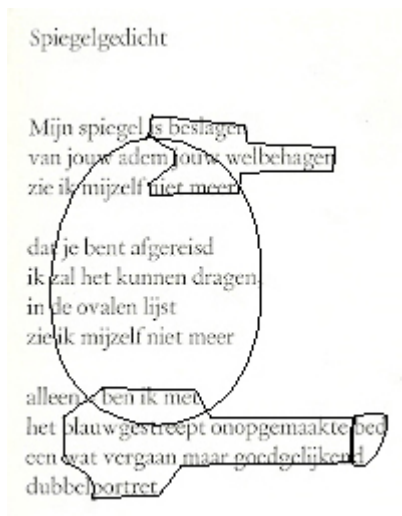 Spiegelgedicht
Mijn spiegel is beslagen
van jouw adem jouw welbehagen
zie ik mijzelf niet meer
dat je bent afgereisd
ik zal het kunnen dragen
in de ovalen lijst
zie ik mijzelf niet meer
alleen - ben ik met
het blauwgestreept onopgemaakte bed
een wat vergaan maar goedgelijkend
dubbelportret